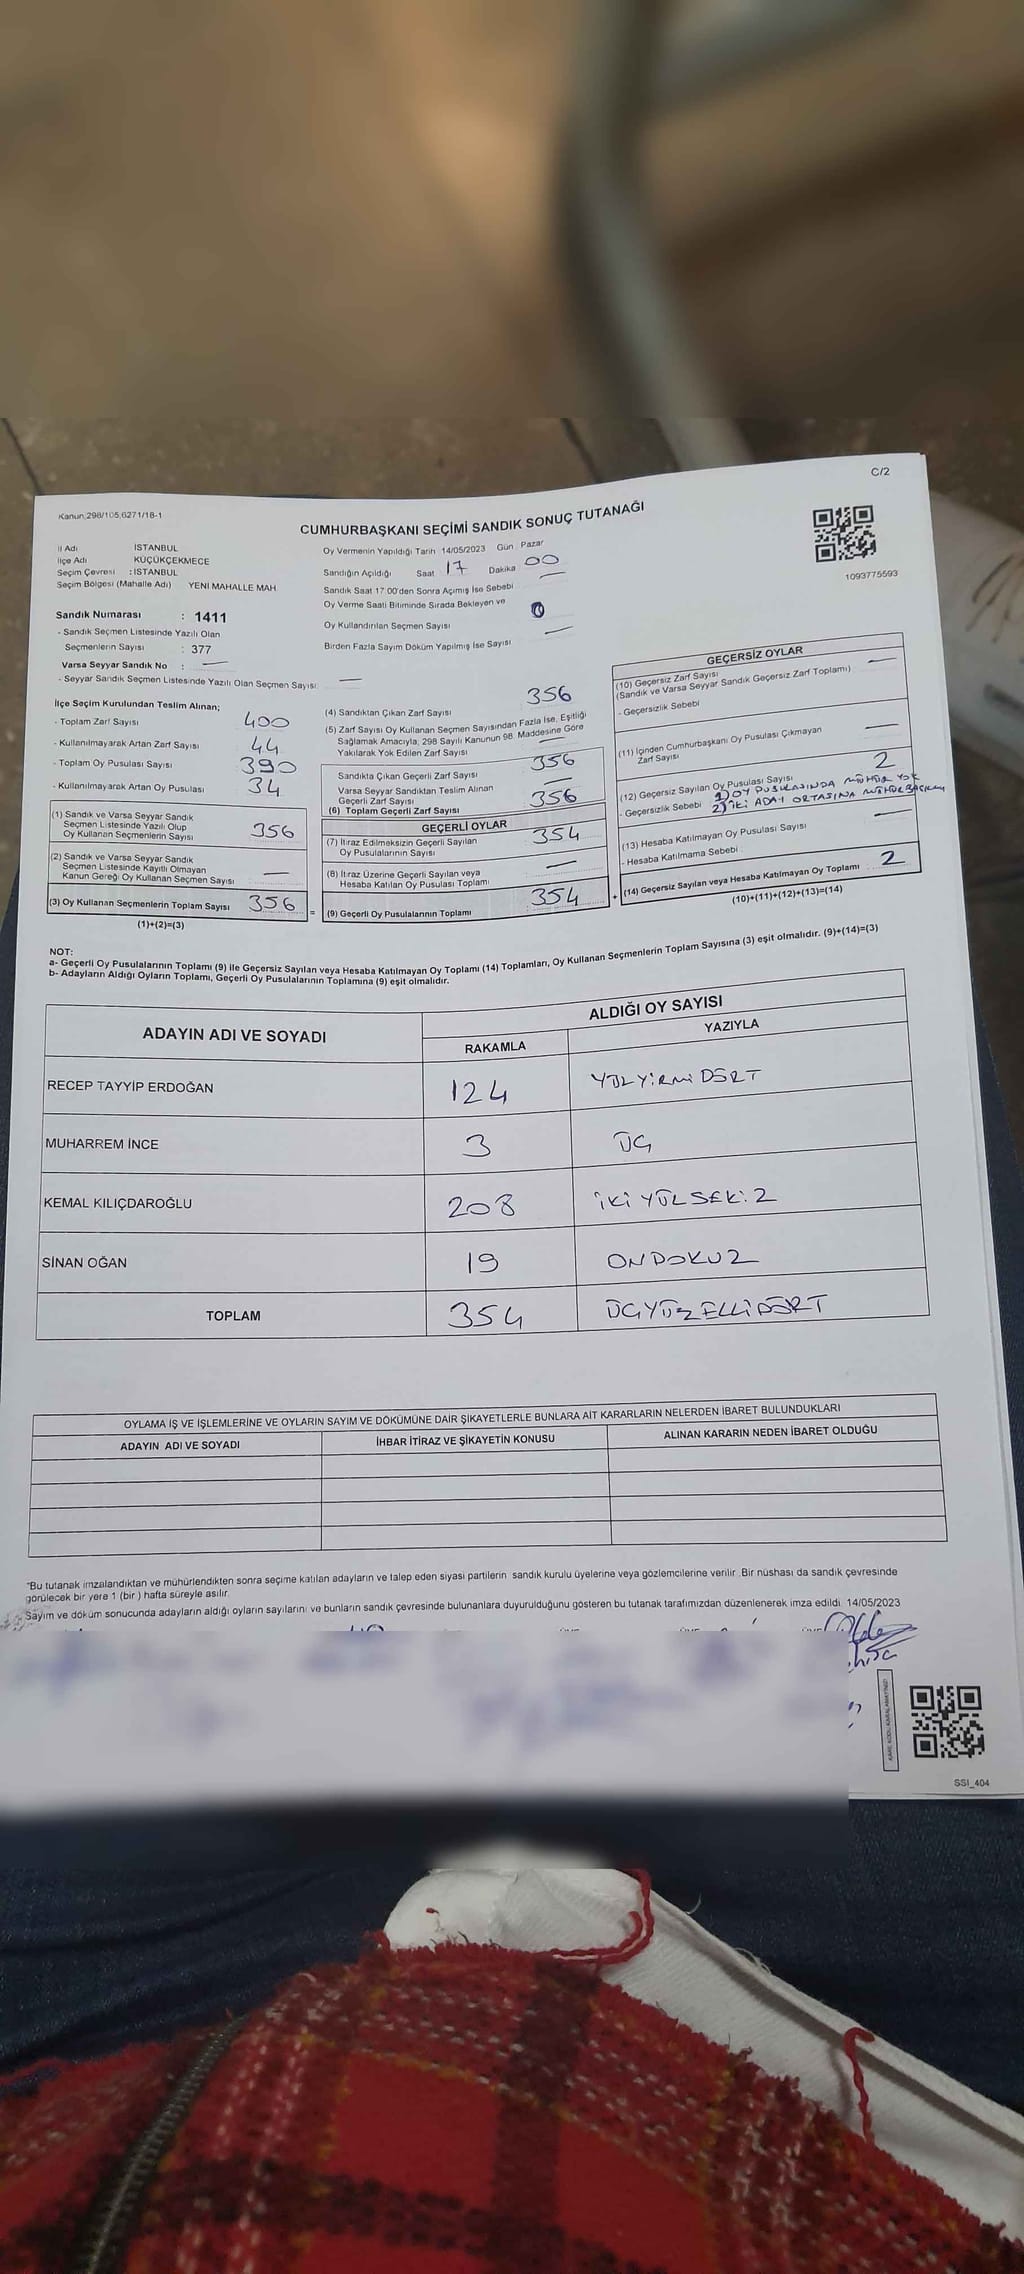 C/2
Kanun;298/105,6271/18-1
CUMHURBAŞKANI SEÇİMİ SANDIK SONUÇ TUTANAĞI
1093775593
İl Adı İSTANBUL
İlçe Adı KÜÇÜKÇEKMECE
Seçim Çevresi : İSTANBUL
Seçim Bölgesi (Mahalle Adı) YENİ MAHALLE MAH
Oy Vermenin Yapıldığı Tarih 14/05/2023 Gün Pazar
Sandığın Açıldığı Saat 17 Dakika 00
Sandık Saat 17:00'den Sonra Açımış İse Sebebi —
Oy Verme Saati Bitiminde Sırada Bekleyen ve
Oy Kullandırılan Seçmen Sayısı 0
Birden Fazla Sayım Döküm Yapılmış İse Sayısı —
Sandık Numarası : 1411
- Sandık Seçmen Listesinde Yazılı Olan
Seçmenlerin Sayısı : 377
Varsa Seyyar Sandık No : —
- Seyyar Sandık Seçmen Listesinde Yazılı Olan Seçmen Sayısı: —
İlçe Seçim Kurulundan Teslim Alınan;
- Toplam Zarf Sayısı 400
- Kullanılmayarak Artan Zarf Sayısı 44
- Toplam Oy Pusulası Sayısı 390
- Kullanılmayarak Artan Oy Pusulası 34
(1) Sandık ve Varsa Seyyar Sandık
Seçmen Listesinde Yazılı Olup
Oy Kullanan Seçmenlerin Sayısı 356
(2) Sandık ve Varsa Seyyar Sandık
Seçmen Listesinde Kayıtlı Olmayan
Kanun Gereği Oy Kullanan Seçmen Sayısı —
(3) Oy Kullanan Seçmenlerin Toplam Sayısı 356
(1)+(2)=(3)
(4) Sandıktan Çıkan Zarf Sayısı 356
(5) Zarf Sayısı Oy Kullanan Seçmen Sayısından Fazla İse, Eşitliği
Sağlamak Amacıyla, 298 Sayılı Kanunun 98. Maddesine Göre
Yakılarak Yok Edilen Zarf Sayısı —
Sandıkta Çıkan Geçerli Zarf Sayısı 356
Varsa Seyyar Sandıktan Teslim Alınan
Geçerli Zarf Sayısı —
(6) Toplam Geçerli Zarf Sayısı 356
GEÇERLİ OYLAR
(7) İtiraz Edilmeksizin Geçerli Sayılan
Oy Pusulalarının Sayısı 354
(8) İtiraz Üzerine Geçerli Sayılan veya
Hesaba Katılan Oy Pusulası Toplamı —
= (9) Geçerli Oy Pusulalarının Toplamı 354 +
GEÇERSİZ OYLAR
(10) Geçersiz Zarf Sayısı —
(Sandık ve Varsa Seyyar Sandık Geçersiz Zarf Toplamı)
- Geçersizlik Sebebi
(11) İçinden Cumhurbaşkanı Oy Pusulası Çıkmayan
Zarf Sayısı —
(12) Geçersiz Sayılan Oy Pusulası Sayısı 2
- Geçersizlik Sebebi 1) OY PUSULASINDA MÜHÜR YOK
2) İKİ ADAY ORTASINA MÜHÜR
(13) Hesaba Katılmayan Oy Pusulası Sayısı —
- Hesaba Katılmama Sebebi :
(14) Geçersiz Sayılan veya Hesaba Katılmayan Oy Toplamı 2
(10)+(11)+(12)+(13)=(14)
NOT:
a- Geçerli Oy Pusulalarının Toplamı (9) ile Geçersiz Sayılan veya Hesaba Katılmayan Oy Toplamı (14) Toplamları, Oy Kullanan Seçmenlerin Toplam Sayısına (3) eşit olmalıdır. (9)+(14)=(3)
b- Adayların Aldığı Oyların Toplamı, Geçerli Oy Pusulalarının Toplamına (9) eşit olmalıdır.
ADAYIN ADI VE SOYADI ALDIĞI OY SAYISI
RAKAMLA YAZIYLA
RECEP TAYYİP ERDOĞAN 124 YÜZYİRMİDÖRT
MUHARREM İNCE 3 ÜÇ
KEMAL KILIÇDAROĞLU 208 İKİYÜZSEKİZ
SİNAN OĞAN 19 ONDOKUZ
TOPLAM 354 ÜÇYÜZELLİDÖRT
OYLAMA İŞ VE İŞLEMLERİNE VE OYLARIN SAYIM VE DÖKÜMÜNE DAİR ŞİKAYETLERLE BUNLARA AİT KARARLARIN NELERDEN İBARET BULUNDUKLARI
ADAYIN ADI VE SOYADI İHBAR İTİRAZ VE ŞİKAYETİN KONUSU ALINAN KARARIN NEDEN İBARET OLDUĞU
"Bu tutanak imzalandıktan ve mühürlendikten sonra seçime katılan adayların ve talep eden siyasi partilerin sandık kurulu üyelerine veya gözlemcilerine verilir. Bir nüshası da sandık çevresinde
görülecek bir yere 1 (bir) hafta süreyle asılır.
Sayım ve döküm sonucunda adayların aldığı oyların sayılarını ve bunların sandık çevresinde bulunanlara duyurulduğunu gösteren bu tutanak tarafımızdan düzenlenerek imza edildi. 14/05/2023
SSI_404